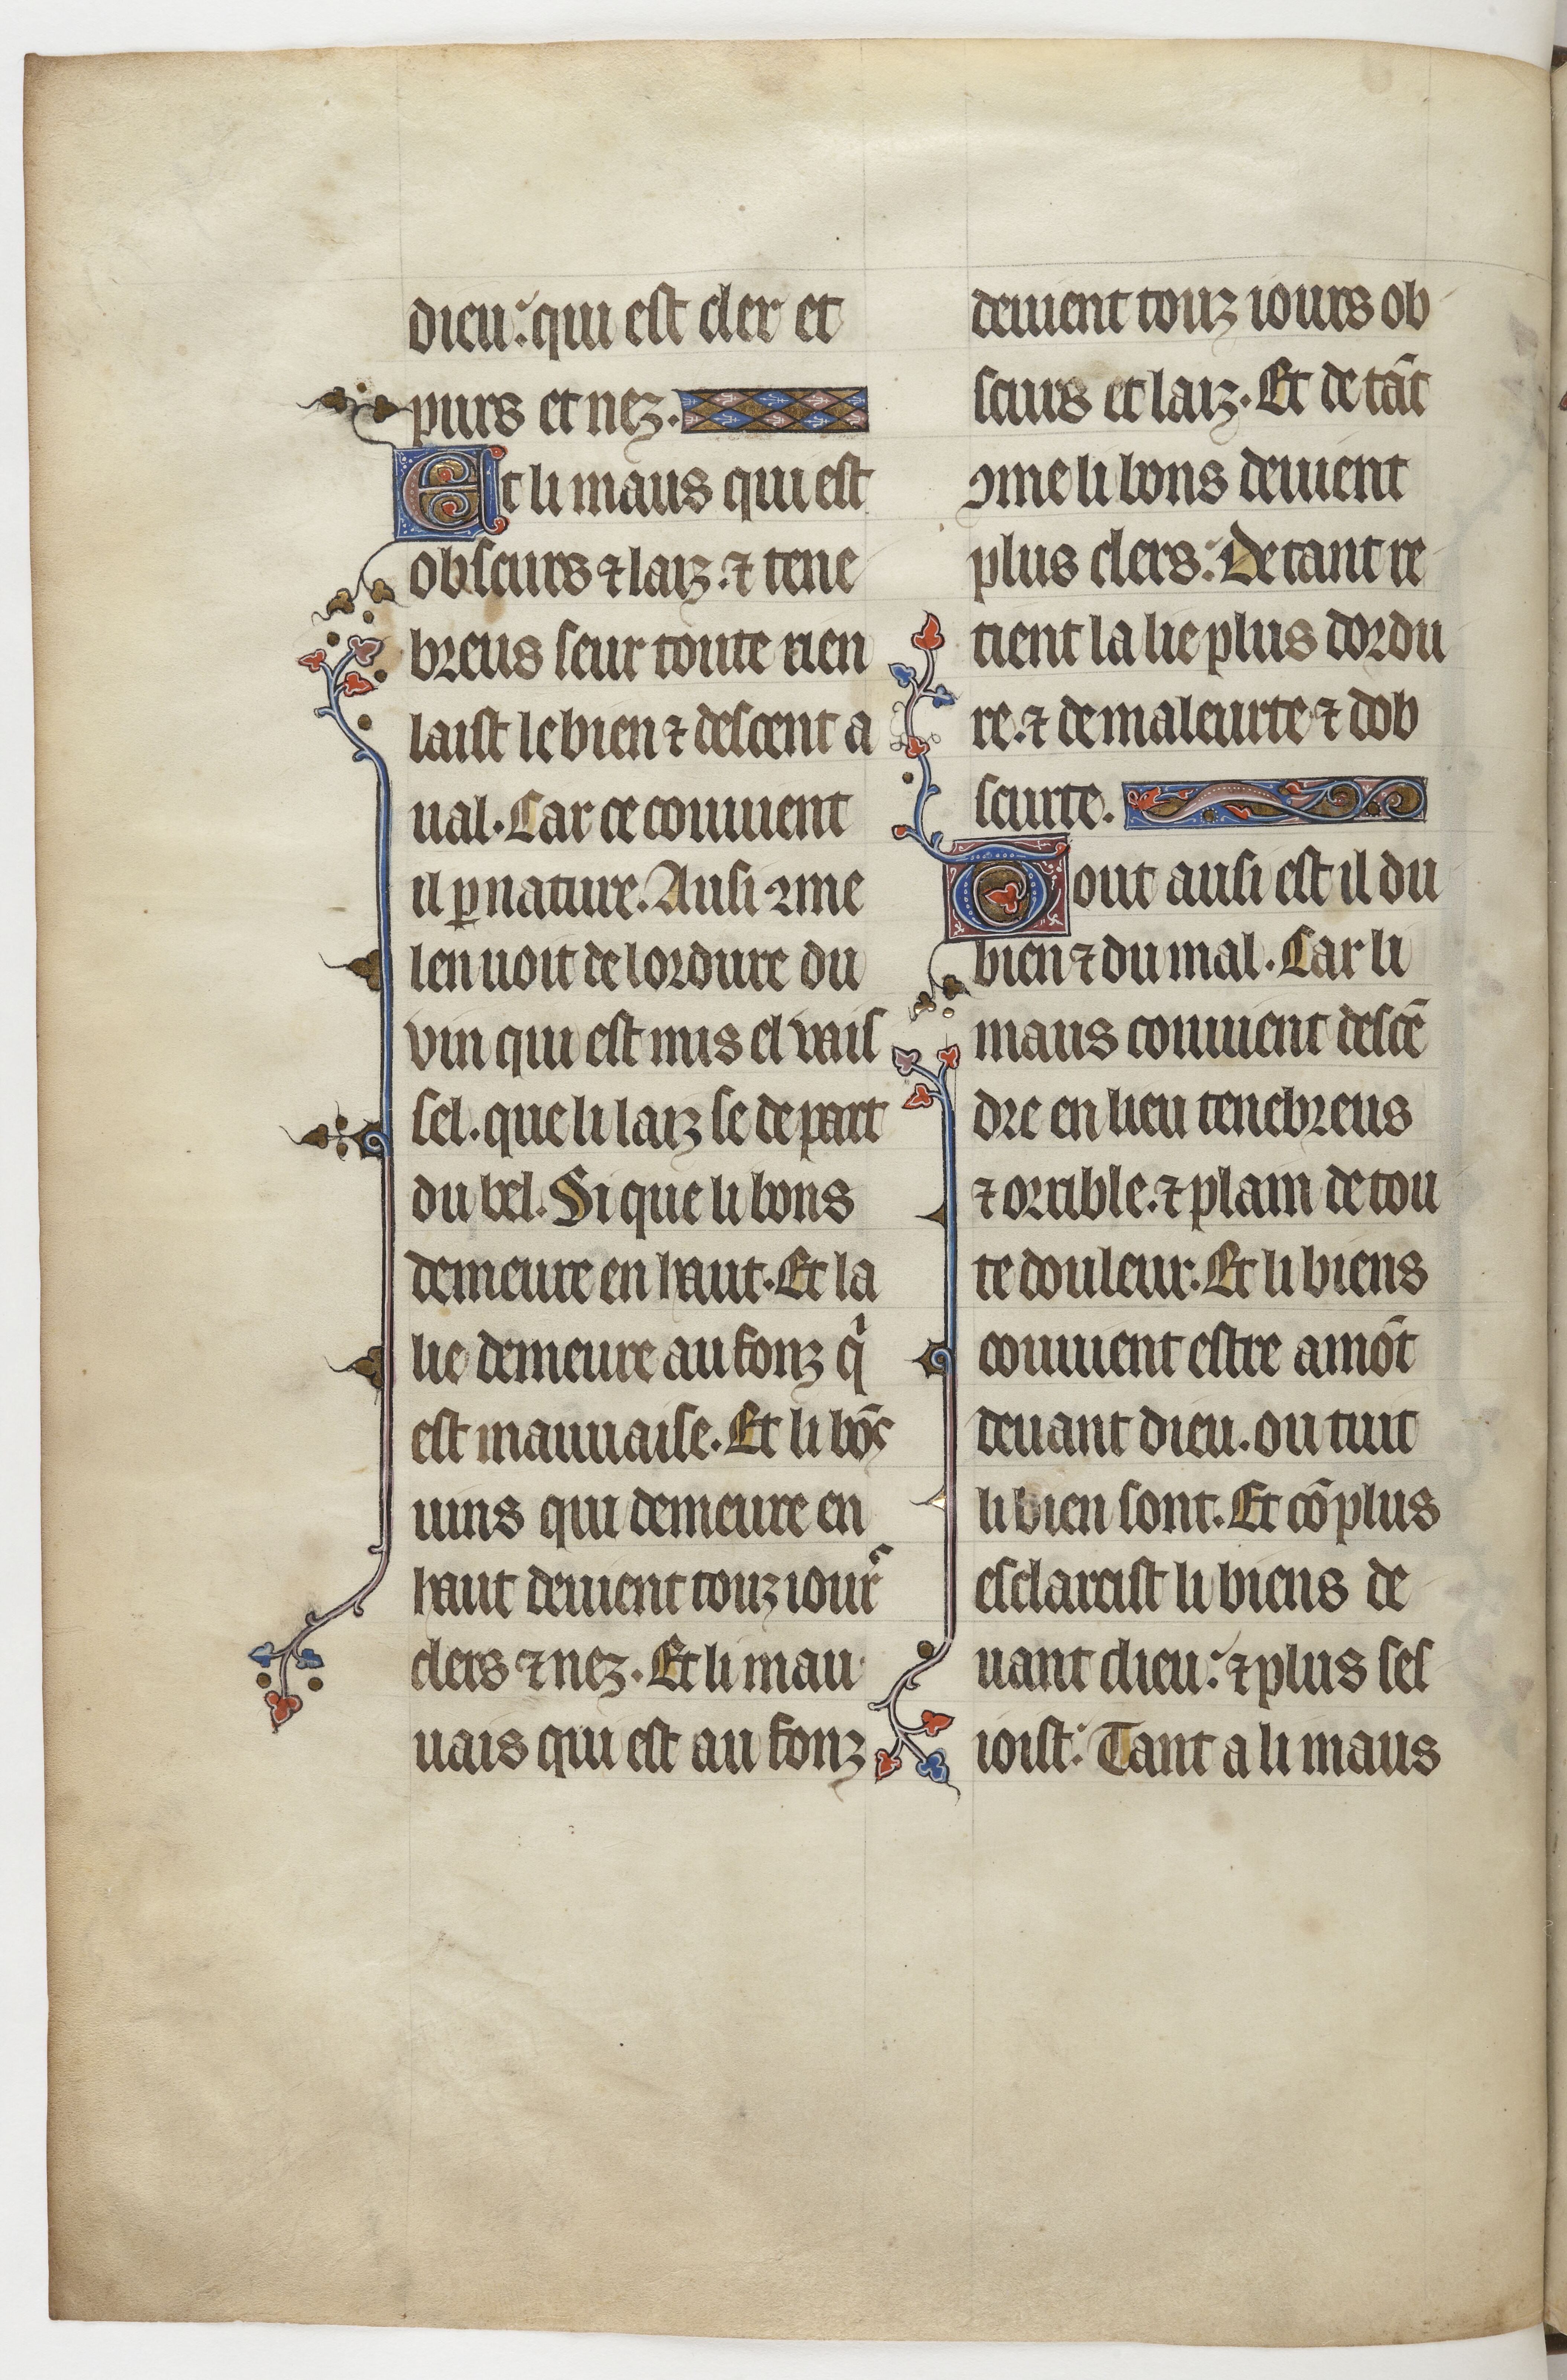 dieu: qui est cler et
purs et nez.
Et li maus qui est
obscurs ⁊ laiz. ⁊ tene
breus seur toute rien
laist le bien ⁊ descent a
ual. Car ce couuient
il ꝑ nature. Ausi ꝯme
len uoit de lordure du
vin qui est mis el vais
sel. que li laiz se depart
du bel. Si que li bons
demeure en haut. Et la
lie demeure au fonz qͥ
est mauuaise. Et li bōs
uins qui demeure en
haut deuient touz iours
clers ⁊ nez. Et li mau
uais qui est au fonz
deuient touz iours ob
scurs et laiz. Et de tāt
ꝯme li bons deuient
plus clers: De tant re
tient la lie plus dordu
re. ⁊ de maleurte ⁊ dob
scurte.
Tout ausi est il du
bien ⁊ du mal. Car li
maus couuient descē
dre en lieu tenebreus
⁊ orrible. ⁊ plain de tou
te douleur. Et li biens
couuient estre amōt
deuant dieu. ou tuit
li bien sont. Et cō plus
esclarcist li biens de
uant dieu: ⁊ plus ses
ioist: Tant a li maus